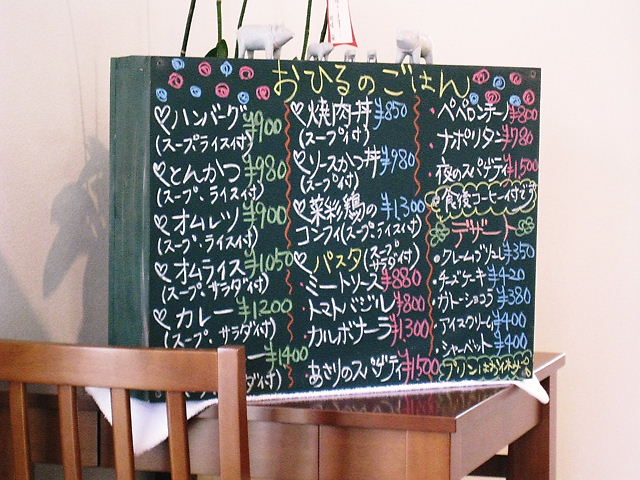 おひるのごはん
♡ハンバーグ ¥900
(スープ.ライス付)
♡とんかつ ¥980
(スープ、ライス付)
♡オムレツ ¥900
(スープ、ライス付)
♡オムライス ¥1050
(スープ、サラダ付)
♡カレー ¥1200
(スープ、サラダ付)
ー ¥1400
ダ付)
♡焼肉丼 ¥850
(スープ付)
♡ソースかつ丼 ¥980
(スープ付)
♡菜彩鶏の ¥1,300
コンフィ(スープ.ライス付)
♡パスタ(スープ サラダ付)
・ミートソース ¥880
トマトバジル ¥800
・カルボナーラ ¥1300
あさりのスパゲティ ¥1500
・ペペロンチーノ ¥800
・ナポリタン ¥780
・夜のスパゲティ ¥1500
食後コーヒー付です
デザート
・クレームブリューレ ¥350
・チーズケーキ ¥420
・ガトーショコラ ¥380
・アイスクリーム ¥400
・シャーベット ¥400
プリンは